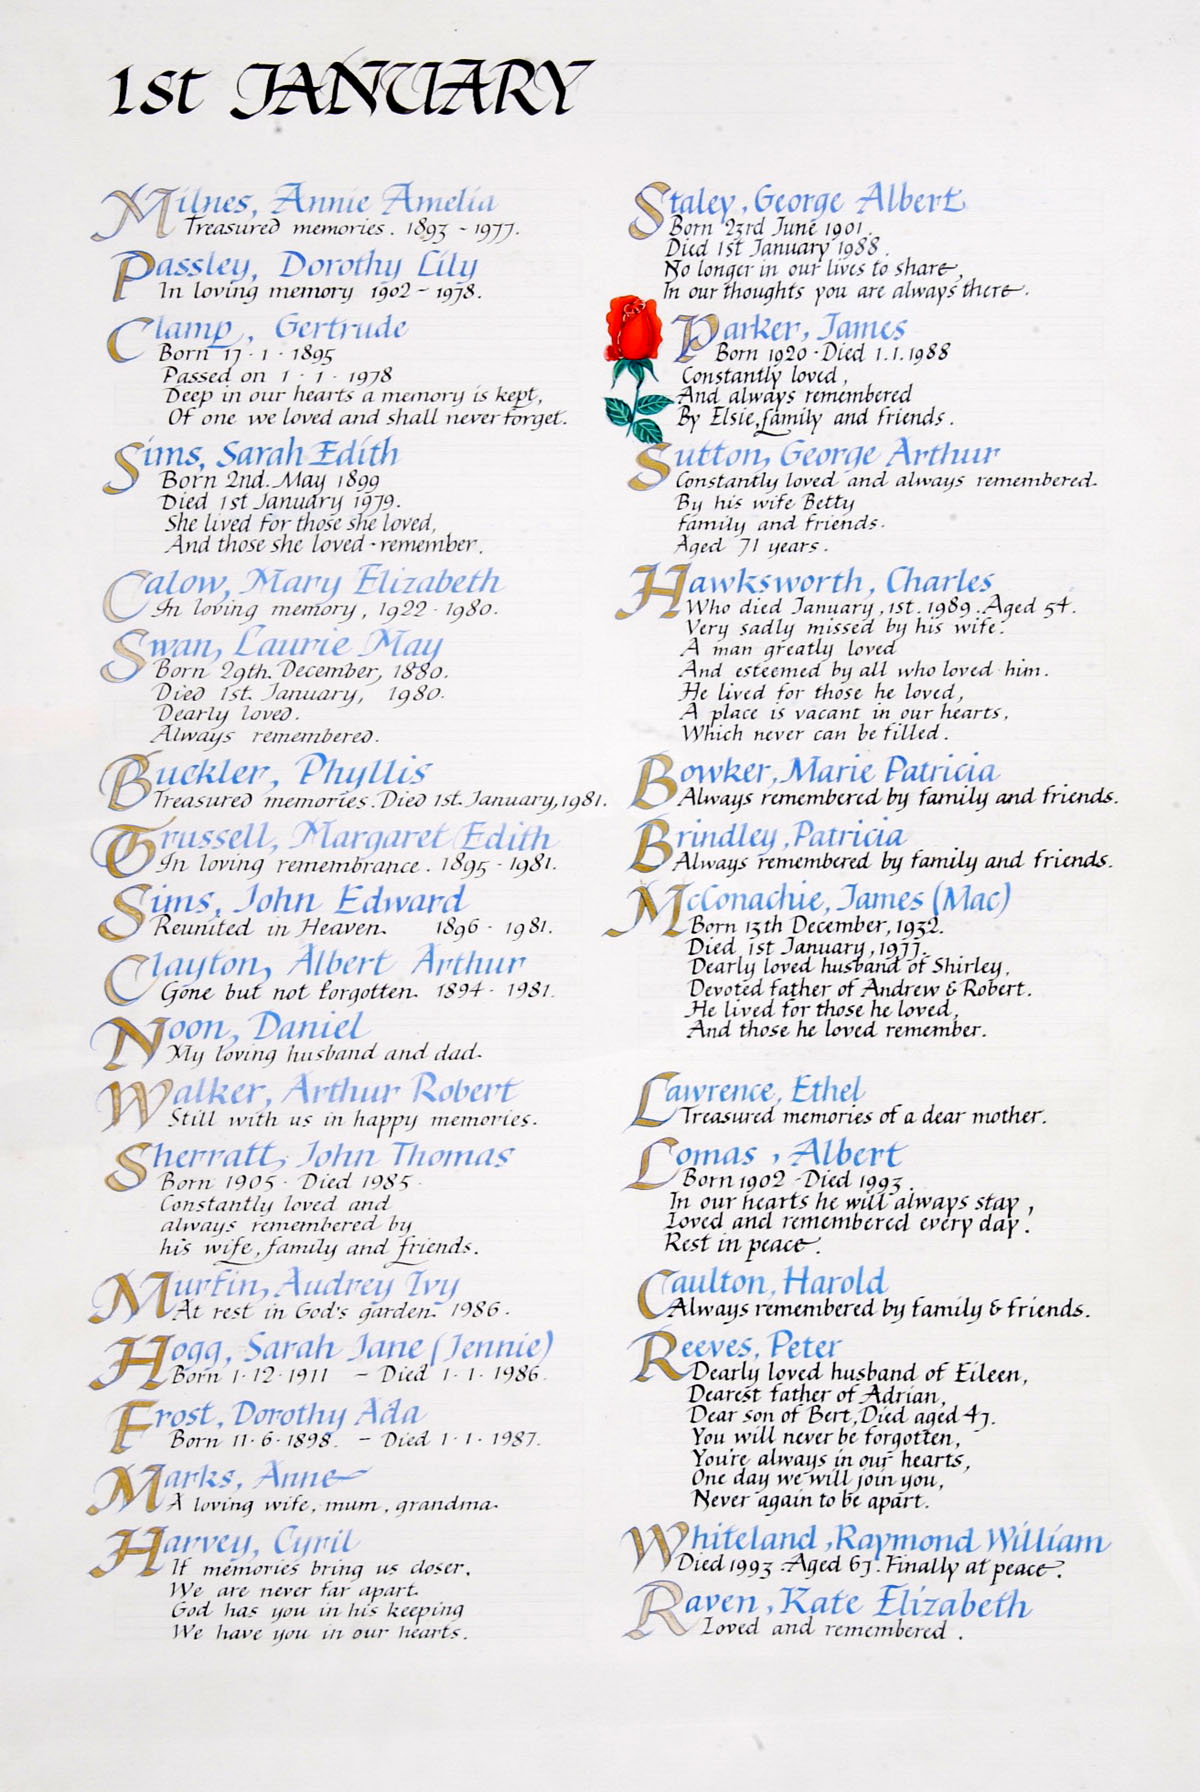 1st JANUARY
Milnes, Annie Amelia
Treasured memories. 1893 - 1977.
Passley, Dorothy Lily
In loving memory 1902 - 1978.
Clamp, Gertrude
Born 17 · 1 · 1895
Passed on 1 · 1 · 1978
Deep in our hearts a memory is kept,
Of one we loved and shall never forget.
Sims, Sarah Edith
Born 2nd. May 1899
Died 1st January 1979.
She lived for those she loved,
And those she loved - remember.
Calow, Mary Elizabeth
In loving memory, 1922 - 1980.
Swan, Laurie May
Born 29th. December, 1880.
Died 1st. January, 1980.
Dearly loved.
Always remembered.
Buckler, Phyllis
Treasured memories. Died 1st. January, 1981.
Trussell, Margaret Edith
In loving remembrance. 1895 - 1981.
Sims, John Edward
Reunited in Heaven. 1896 - 1981.
Clayton, Albert Arthur
Gone but not forgotten. 1894 - 1981.
Noon, Daniel
My loving husband and dad.
Walker, Arthur Robert
Still with us in happy memories.
Sherratt, John Thomas
Born 1905 · Died 1985 ·
Constantly loved and
always remembered by
his wife, family and friends.
Murfin, Audrey Ivy
At rest in God's garden. 1986.
Hogg, Sarah Jane (Jennie)
Born 1·12·1911 - Died 1·1·1986.
Frost, Dorothy Ada
Born 11·6·1898. - Died 1·1·1987.
Marks, Anne
A loving wife, mum, grandma.
Harvey, Cyril
If memories bring us closer,
We are never far apart.
God has you in his keeping
We have you in our hearts.
Staley, George Albert
Born 23rd June 1901.
Died 1st January 1988.
No longer in our lives to share,
In our thoughts you are always there.
Parker, James
Born 1920 · Died 1.1.1988
Constantly loved,
And always remembered
By Elsie, family and friends.
Sutton, George Arthur
Constantly loved and always remembered.
By his wife Betty
family and friends.
Aged 71 years.
Hawksworth, Charles
Who died January, 1st. 1989. Aged 54.
Very sadly missed by his wife.
A man greatly loved
And esteemed by all who loved him.
He lived for those he loved,
A place is vacant in our hearts,
Which never can be filled.
Bowker, Marie Patricia
Always remembered by family and friends.
Brindley, Patricia
Always remembered by family and friends.
McConachie, James (Mac)
Born 13th December, 1932.
Died 1st January, 1977.
Dearly loved husband of Shirley,
Devoted father of Andrew & Robert.
He lived for those he loved,
And those he loved remember.
Lawrence, Ethel
Treasured memories of a dear mother.
Lomas, Albert
Born 1902 - Died 1993.
In our hearts he will always stay,
Loved and remembered every day.
Rest in peace.
Caulton, Harold
Always remembered by family & friends.
Reeves, Peter
Dearly loved husband of Eileen,
Dearest father of Adrian,
Dear son of Bert, Died aged 47.
You will never be forgotten,
You're always in our hearts,
One day we will join you,
Never again to be apart.
Whiteland, Raymond William
Died 1993. Aged 67. Finally at peace.
Raven, Kate Elizabeth
Loved and remembered.